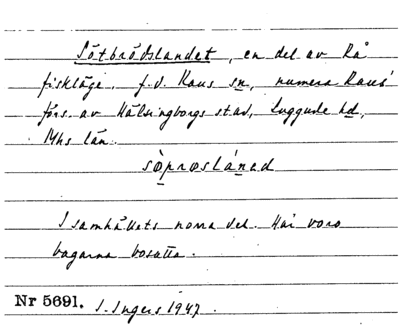 Sötbrödslandet, en del av Rå
fiskläge, f.d. Raus sn, numera Raus'
förs. av Hälsingborgs stad, Luggude hd,
Mhs län.
I samhällets norra del. Här voro
bagarna bosatta.
Nr 5691. I. Ingers 1947.